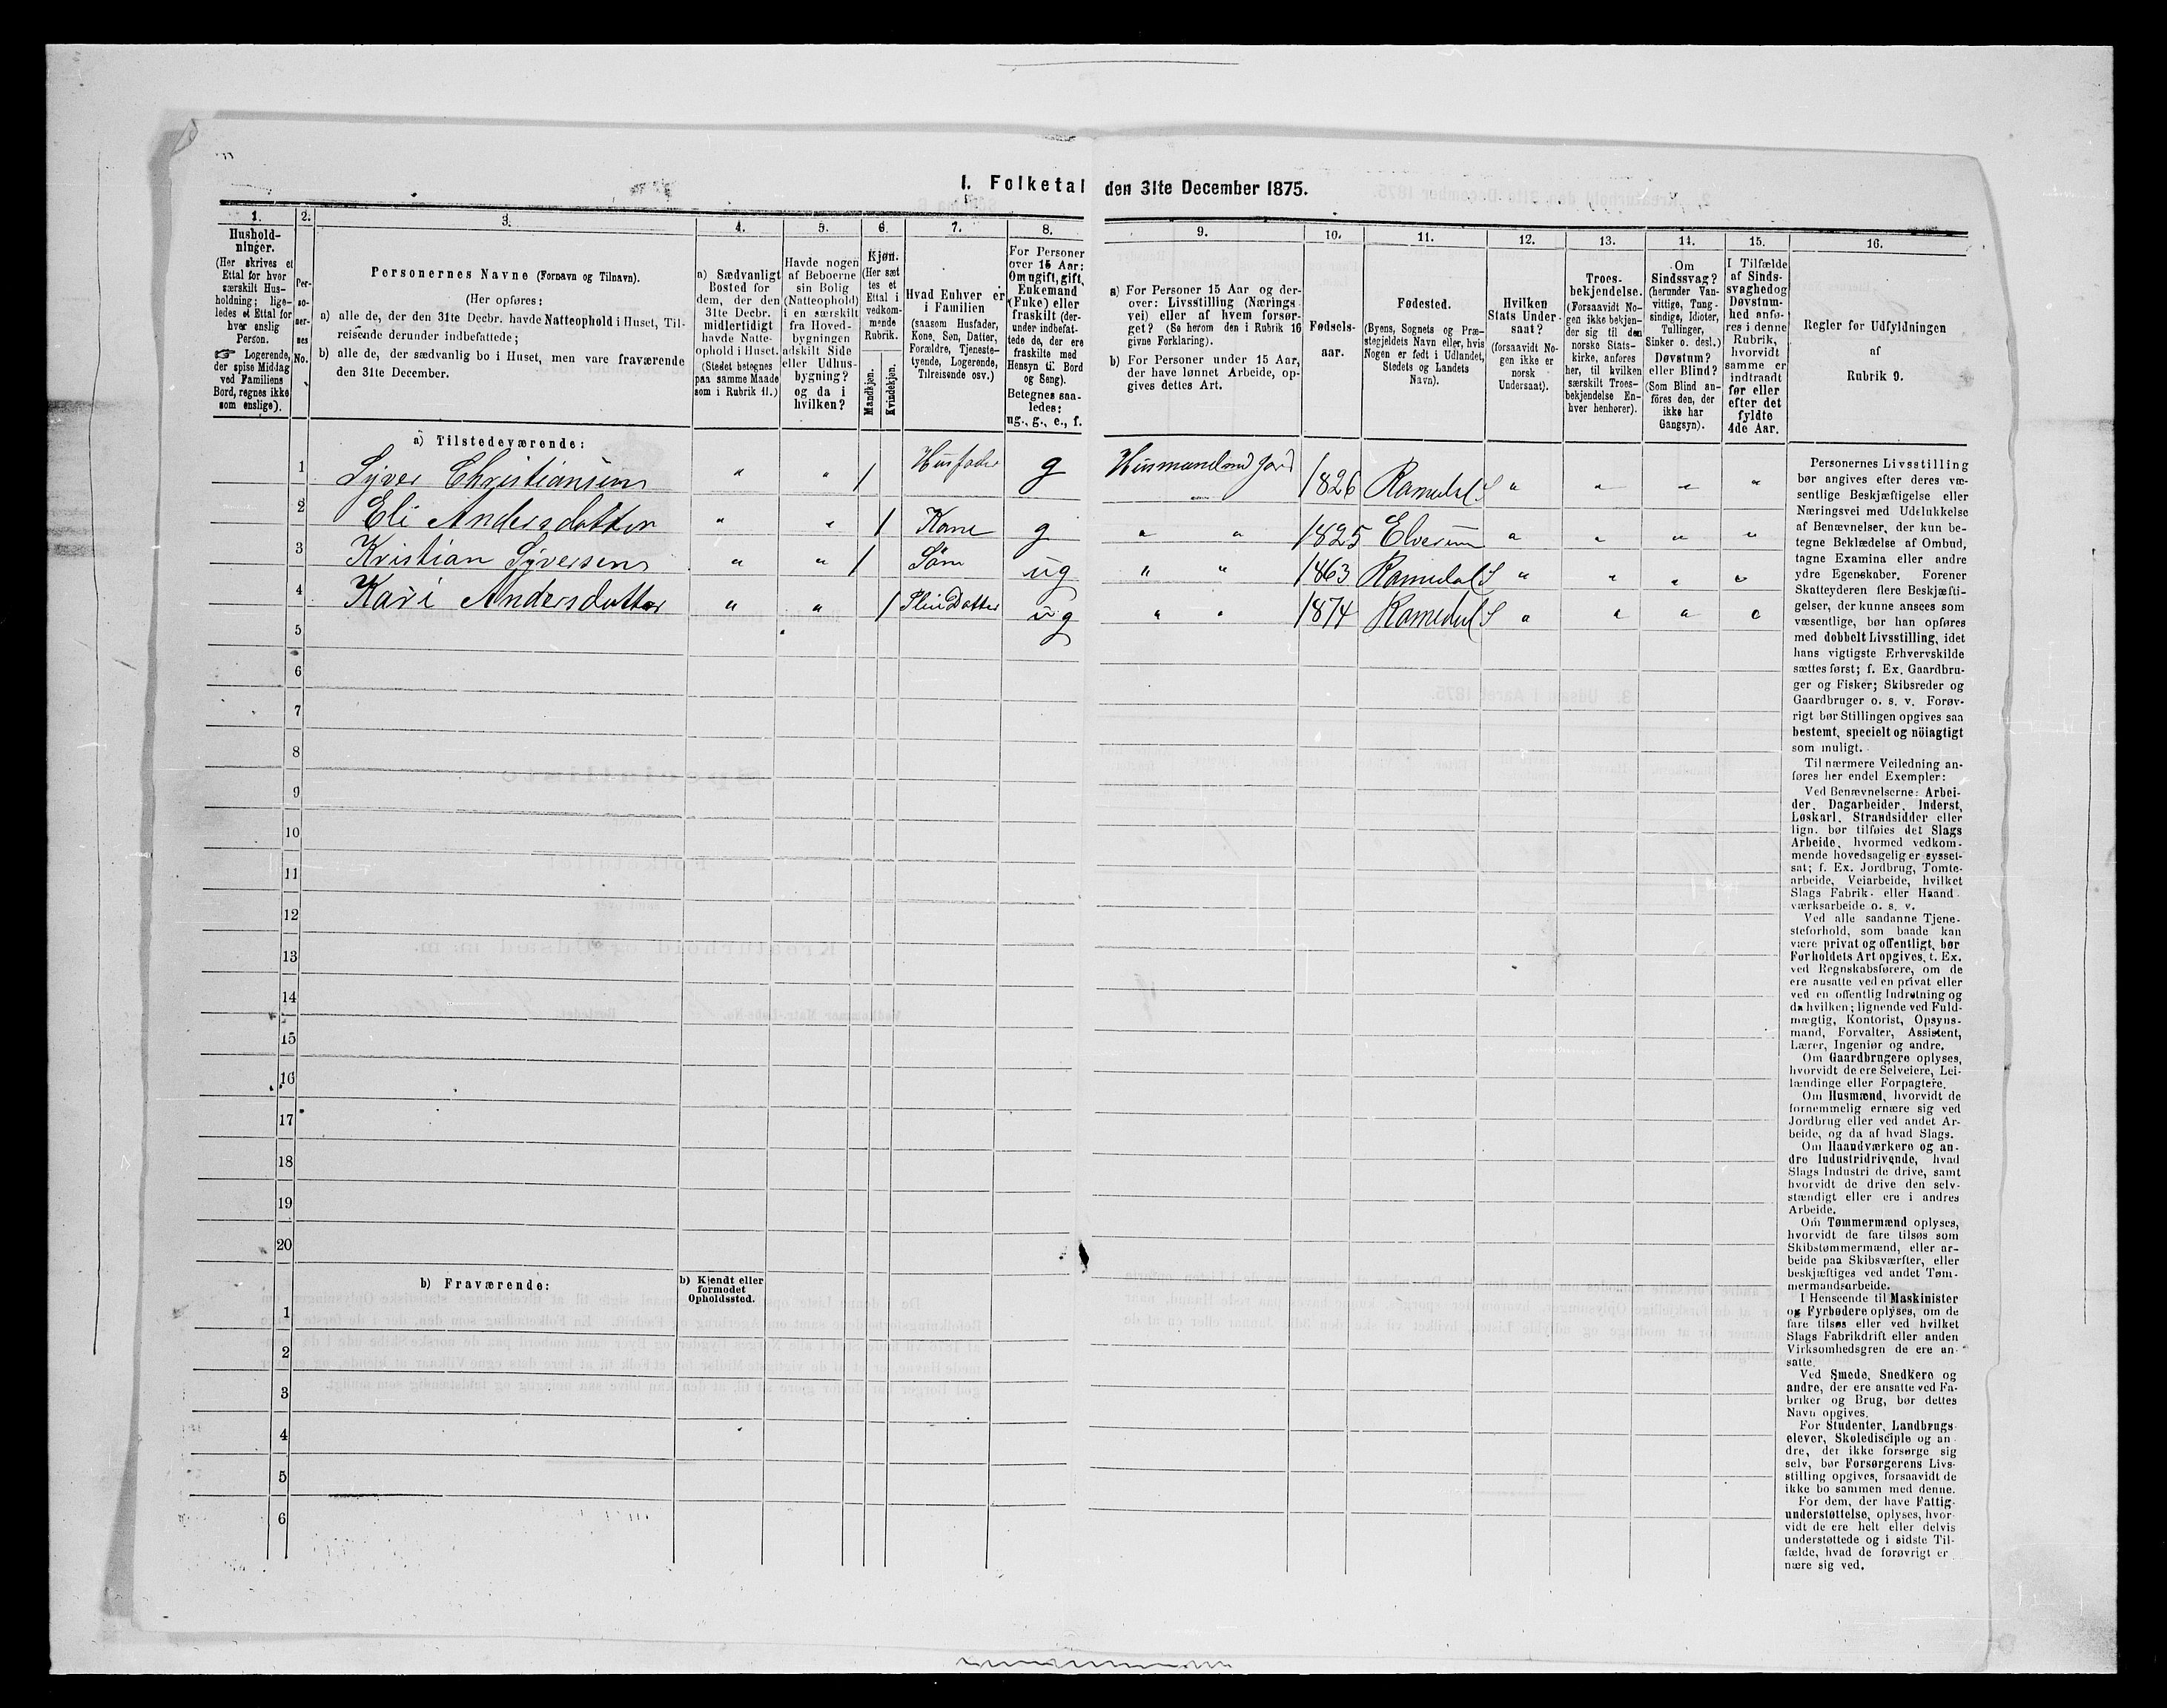 1. Folketal den 31te December 1875.
1.
Hushold-
ninger.
(Her skrives et
Ettal for hver
særskilt Hus-
holdning; lige-
ledes et Ettal for
hver enslig
Person.
☞ Logerende,
der spise Middag
ved Familiens
Bord, regnes ikke
som enslige).
2.
Per-
so-
ner-
nes
No.
3.
Personernes Navne (Fornavn og Tilnavn).
(Her opføres:
a) alle de, der den 31te Decbr. havde Natteophold i Huset, Til-
reisende derunder indbefattede;
b) alle de, der sædvanlig bo i Huset, men vare fraværende
den 31te December.
4.
a) Sædvanligt
Bosted for
dem, der den
31te Decbr.
midlertidigt
havde Natte-
ophold i Huset.
(Stedet betegnes
paa samme Maade
som i Rubrik 11.)
5.
Havde nogen
af Beboerne
sin Bolig
(Natteophold)
i en særskilt
fra Hoved-
bygningen
adskilt Side
eller Udhus-
bygning?
og da i
hvilken?
6.
Kjøn.
(Her sæt
tes et
Ettal i
vedkom-
mende
Rubrik.
Mandkjøn.
Kvindekjøn.
7.
Hvad Enhver er
i Familien
(saasom Husfader,
Kone, Søn, Datter,
Forældre, Tjeneste-
tyende, Logerende,
Tilreisende osv.)
8.
For Personer
over 15 Aar:
Om ugift, gift,
Enkemand
(Enke) eller
fraskilt (der-
under indbefat-
tede de, der ere
fraskilte med
Hensyn til Bord
og Seng).
Betegnes saa-
ledes:
ug., g., e., f.
9.
a) For Personer 15 Aar og der-
over: Livsstilling (Nærings-
vei) eller af hvem forsør-
get? (Se herom den i Rubrik 16
givne Forklaring).
b) For Personer under 15 Aar,
der have lønnet Arbeide, op-
gives dettes Art.
10.
Fødsels-
aar.
11.
Fødested.
(Byens, Sognets og Præ-
stegjeldets Navn eller, hvis
Nogen er født i Udlandet,
Stedets og Landets
Navn).
12.
Hvilken
Stats Under-
saat?
(forsaavidt No-
gen ikke er
norsk
Undersaat).
13.
Troes-
bekjendelse.
(Forsaavidt No-
gen ikke bekjen-
der sig til den
norske Stats-
kirke, anføres
her, til hvilken
særskilt Troes-
bekjendelse En-
hver henhører).
14.
Om
Sindssvag?
(herunder Van-
vittige, Tung-
sindige, Idioter,
Tullinger,
Sinker o. desl.)
Døvstum?
eller Blind?
(Som Blind an-
føres den, der
ikke har
Gangsyn).
15.
I Tilfælde
af Sinds-
svaghed og
Døvstum-
hed anfø-
res i denne
Rubrik,
hvorvidt
samme er
indtraadt
før eller
efter det
fyldte
4de Aar.
16.
Regler for Udfyldningen
af
Rubrik 9.
a) Tilstedeværende:
1 Syver Christiansen " " 1 Husfader g Husmand med Jord 1826 Romedal S " " " "
2 Eli Andersdatter " " 1 Kone g " " 1825 Elverum " " " "
3 Kristian Syversen " " 1 Søn ug " " 1863 Romedal S " " " "
4 Kari Andersdatter " " 1 Pleie Datter ug " " 1874 Romedal S " " " "
5
6
7
8
9
10
11
12
13
14
15
16
17
18
19
20
b) Fraværende:
b) Kjendt eller
formodet
Opholdssted.
1
2
3
4
5
6
Personernes Livsstilling
bør angives efter deres væ-
sentlige Beskjæftigelse eller
Næringsvei med Udelukkelse
af Benævnelser, der kun be-
tegne Beklædelse af Ombud,
tagne Examina eller andre
ydre Egenskaber. Forener
Skatteyderen flere Beskjæfti-
gelser, der kunne ansees som
væsentlige, bør han opføres
med dobbelt Livsstilling, idet
hans vigtigste Erhvervskilde
sættes først; f. Ex. Gaardbru-
ger og Fisker; Skibsreder og
Gaardbruger o. s. v. Forøv-
rigt bør Stillingen opgives saa
bestemt, specielt og nöiagtigt
som muligt.
Til nærmere Veiledning an-
føres her endel Exempler:
Ved Benævnelserne: Arbei-
der, Dagarbeider, Inderst,
Løskarl, Strandsidder eller
lign. bør tilføies det Slags
Arbeide, hvormed vedkom-
mende hovedsagelig er syssel-
sat; f. Ex. Jordbrug, Tomte-
arbeide, Veiarbeide, hvilket
Slags Fabrik- eller Haand-
værksarbeide o. s. v.
Ved alle saadanne Tjene-
steforhold, som baade kan
være privat og offentligt, bør
Forholdets Art opgives, t. Ex.
ved Regnskabsførere, om de
ere ansatte ved en privat eller
ved en offentlig Indretning og
da hvilken; lignende ved Fuld-
mægtig, Kontorist, Opsyns-
mand, Forvalter, Assistent,
Lærer, Ingeniør og andre.
Om Gaardbrugere oplyses,
hvorvidt de ere Selveiere, Lei-
lændinge eller Forpagtere.
Om Husmænd, hvorvidt de
fornemmelig ernære sig ved
Jordbrug eller ved andet Ar-
beide, og da af hvad Slags.
Om Haandværkere og an-
dre Industridrivende, hvad
Slags Industri de drive, samt
hvorvidt de drive den selv-
stændigt eller ere i andres
Arbeide.
Om Tømmermænd oplyses,
hvorvidt de fare tilsøs som
Skibstømmermænd, eller ar-
beide paa Skibsværfter, eller
beskjæftiges ved andet Tøm-
mermandsarbeide.
I Henseende til Maskinister
og Fyrbødere oplyses, om de
fare tilsøs eller ved hvilket
Slags Fabrikdrift eller anden
Virksomhedsgren de ere an-
satte.
Ved Smede, Snedkere og
andre, der ere ansatte ved Fa-
briker og Brug, bør dettes
Navn opgives.
For Studenter, Landbrugs-
elever, Skoledisciple og an-
dre, der ikke forsørge sig
selv, bør Forsørgerens Livs-
stilling opgives, forsaavidt de
ikke bo sammen med denne.
For dem, der have Fattig-
understøttelse, oplyses, hvor-
vidt de ere helt eller delvis
understøttede og i sidste Til-
fælde, hvad de forøvrigt er-
nære sig ved.